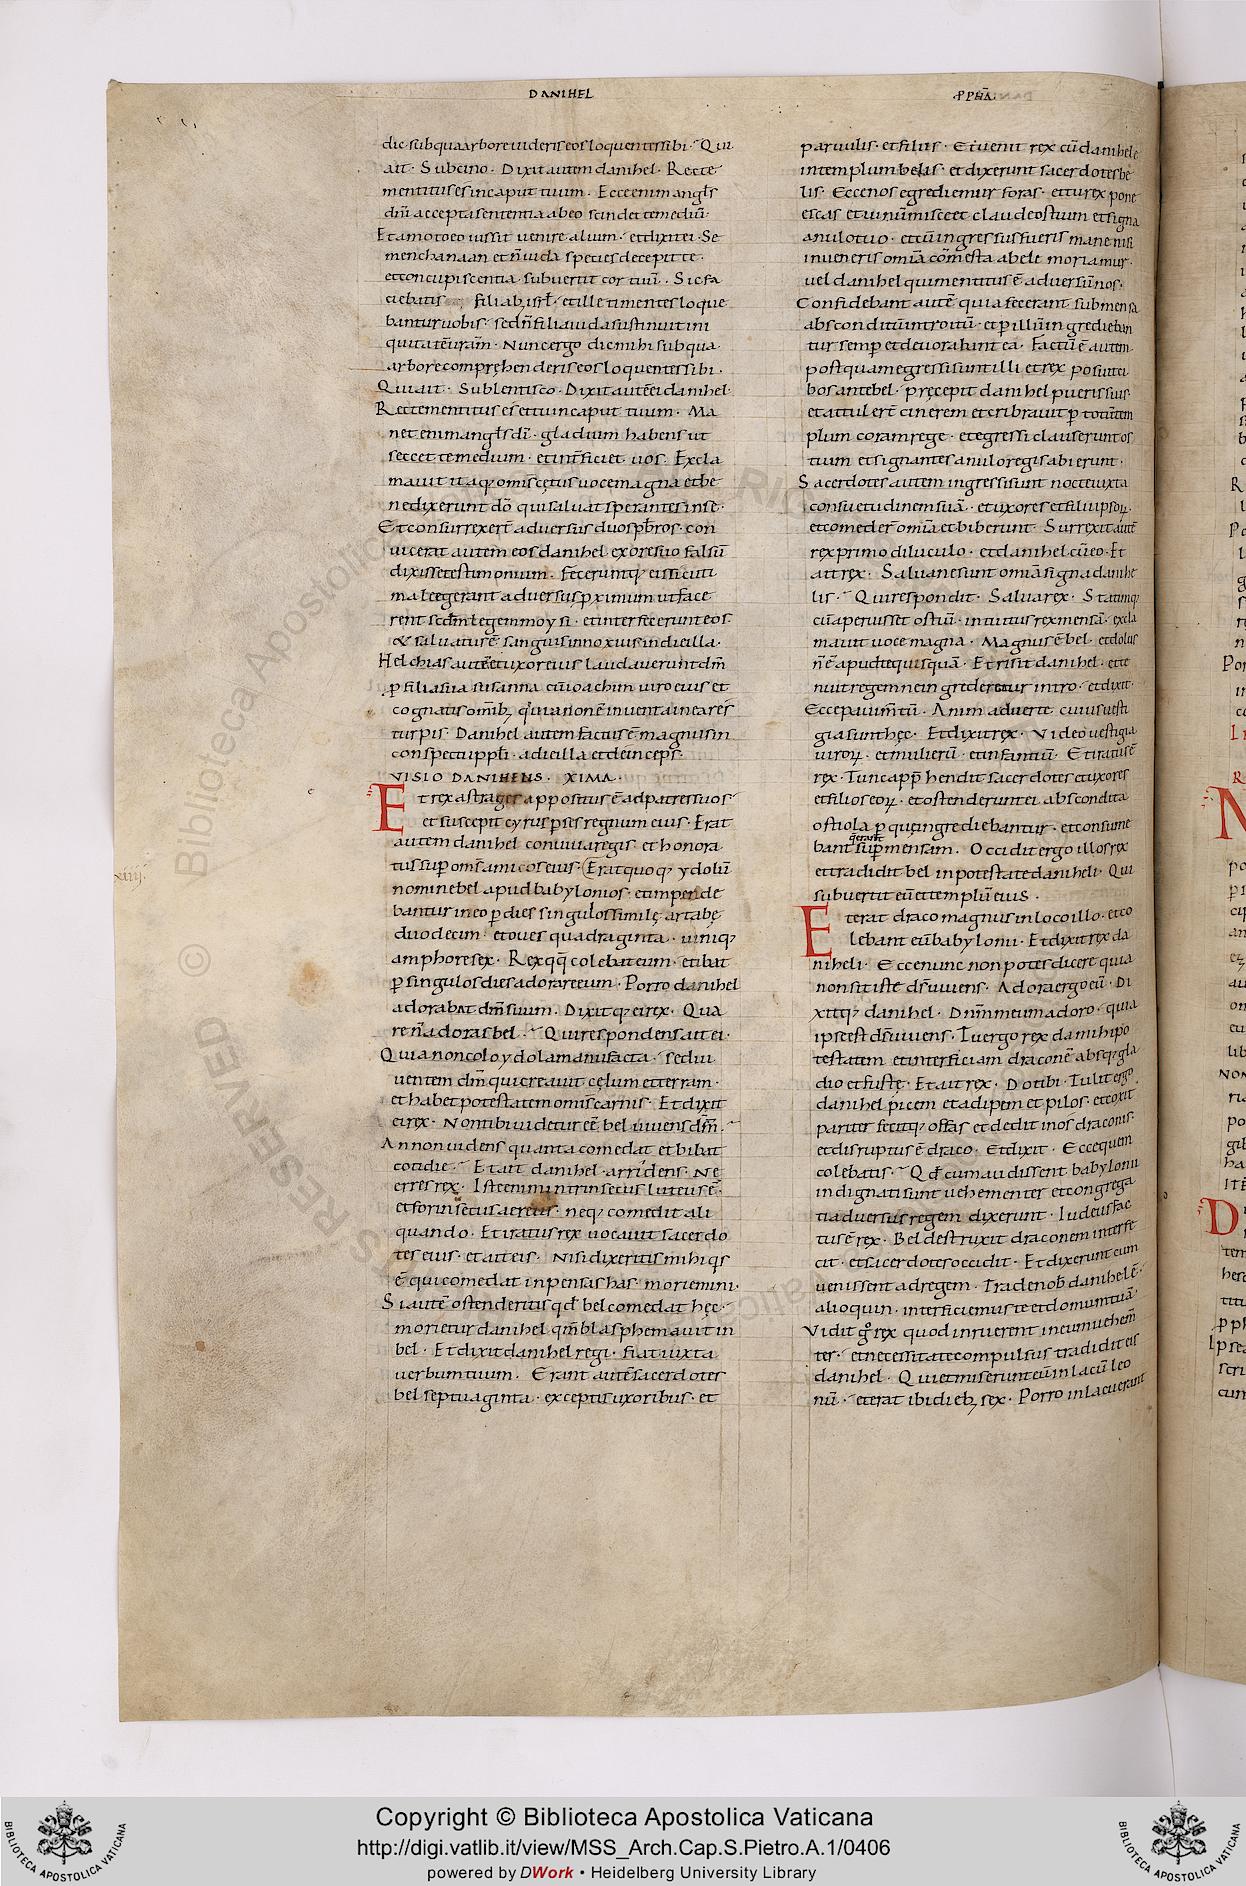 DANIHEL
PPHA
dic sub qua arbore uideris eos loquentes sibi. Qui
ait. Sub cino. Dixit autem danihel. Recte
mentitus es in caput tuum. Ecce enim angls
dni accepta sententia ab eo scindet te mediu.
Et amoto eo iussit uenire alium. et dixit ei. Se
men chanaan et n iuda species decepit te.
et concupiscentia subuertit cor tuu. Sic fa
ciebatis filiab isrl. et ille timentes loque
bantur uobis. sed n filia iuda sustinuit ini
quitate uram. Nunc ergo dic mihi sub qua
arbore comprehenderis eos loquentes sibi.
Qui ait. Sub lentisco. Dixit aute ei danihel.
Recte mentitus es et tu in caput tuum. Ma
net enim angls di. gladium habens ut
secet te medium. et interficiet uos. Excla
mauit itaq; omis cetus uoce magna et be
nedixerunt do qui saluat sperantes in se.
Et consurrexert aduersus duos pbros. con
uicerat autem eos danihel ex ore suo falsu
dixisse testimonium. Feceruntq; eis sicuti
male egerant aduersus pximum ut face
rent scdm legem moysi. et interfecerunt eos.
& saluatus e sanguis innoxius in die illa.
Helchias aute et uxor eius laudauerunt dm
p filia sua susanna cu ioachim uiro eius et
cognatis omib; quia non e inuenta in ea res
turpis. Danihel autem factus e magnus in
conspectu ppli. a die illa et deinceps.
VISIO DANIHELIS. XIMA.
Et rex astrages appositus e ad patres suos
et suscepit cyrus pses regnum eius. Erat
autem danihel conuiua regis et honora
tus sup oms amicos eius. Erat quoq; ydolu
nomine bel apud babylonios. et impende
bantur in eo p dies singulos simile artabe
duodecim. et oues quadraginta. uiniq;
amphore sex. Rex qq colebat eum. et ibat
p singulos dies adorare eum. Porro danihel
adorabat dm suum. Dixitq; ei rex. Qua
re n adoras bel. Qui respondens ait ei.
Quia non colo ydola manufacta. sed ui
uentem dm qui creauit celum et terram.
et habet potestatem omis carnis. Et dixit
ei rex. Non tibi uidetur ee bel uiuens dm.
An non uides quanta comedat et bibat
cotidie. Et ait danihel arridens. Ne
erres rex. Iste enim intrinsecus luteus e
et forinsecus aereus. neq; comedit ali
quando. Et iratus rex uocauit sacerdo
tes eius. et ait eis. Nisi dixeritis mihi qs
e qui comedat inpensas has. moriemini.
Si aute ostenderitis qd bel comedat hec.
morietur danihel qm blasphemauit in
bel. Et dixit danihel regi. fiat iuxta
uerbum tuum. Erant aute sacerdotes
bel septuaginta. exceptis uxoribus. et
paruulis. et filiis. Et uenit rex cu danihele
in templum belis. et dixerunt sacerdotes be
lis. Ecce nos egrediemur foras. et tu rex pone
escas et uinum isce et claude ostium et signa
anulo tuo. et cu ingressus fueris mane nisi
inueneris omia comesta a bele moriamur.
uel danihel qui mentitus e aduersu nos.
Confidebant aute quia fecerant sub mensa
absconditu introitu. et p illu ingrediebam
tur semp et deuorabunt ea. Factu e autem
postquam egressi sunt illi et rex posuit ci
bos ante bel. precepit danihel pueris suis
et attulert cinerem et cribrauit p totu tem
plum coram rege. et egressi clauserunt os
tium et signantes anulo regis abierunt.
Sacerdotes autem ingressi sunt nocte iuxta
consuetudinem sua. et uxores et filii ipsor
et comeder omia et biberunt. Surrexit aute
rex primo diluculo. et danihel cu eo. Et
ait rex. Salua ne sunt omia signa danihe
lis. Qui respondit. Salua rex. Statimq;
cu aperuisset ostiu. intuitus rex mensa. excla
mauit uoce magna. Magnus e bel. et dolus
n e apud te quisqua. Et risit danihel. et te
nuit regem ne ingrederetur intro. et dixit.
Ecce pauimtu. Animaduerte cuius uesti
gia sunt hec. Et dixit rex. Video uestigia
uiror. et mulieru. et infantiu. Et iratus e
rex. Tunc apphendit sacerdotes et uxores
et filios eor. et ostenderunt ei abscondita
ostiola p que ingrediebantur. et consume
bant que erant sup mensam. Occidit ergo illos rex
et tradidit bel in potestate daniheli. Qui
subuertit eu et templu eius.
Et erat draco magnus in loco illo. et co
lebant eu babylonii. Et dixit rex da
niheli. Ecce nunc non potes dicere quia
non sit iste ds uiuens. Adora ergo eu. Di
xitq; danihel. Dnm meum adoro. quia
ipse est ds uiuens. Tu ergo rex da mihi po
testatem et interficiam dracone absq; gla
dio et fuste. Et ait rex. Do tibi. Tulit ergo
danihel picem et adipem et pilos. et coxit
pariter fecitq; offas et dedit in os draconis.
et disruptus e draco. Et dixit. Ecce quem
colebatis. Qd cum audissent babylonii
indignati sunt uehementer et congrega
ti aduersus regem dixerunt. Iudeus fac
tus e rex. Bel destruxit draconem interfe
cit. et sacerdotes occidit. Et dixerunt cum
uenissent ad regem. Trade nob danihele.
alioquin. interficiemus te et domum tua.
Vidit g rex quod inruerent in eum uehem
ter. et necessitate compulsus tradidit eis
danihel. Qui et miserunt eu in lacu leo
nu. et erat ibi dieb; sex. Porro in lacu erant
Copyright © Biblioteca Apostolica Vaticana
http://digi.vatlib.it/view/MSS_Arch.Cap.S.Pietro.A.1/0406
powered by DWork • Heidelberg University Library
BIBLIOTECA APOSTOLICA VATICANA
BIBLIOTECA APOSTOLICA VATICANA